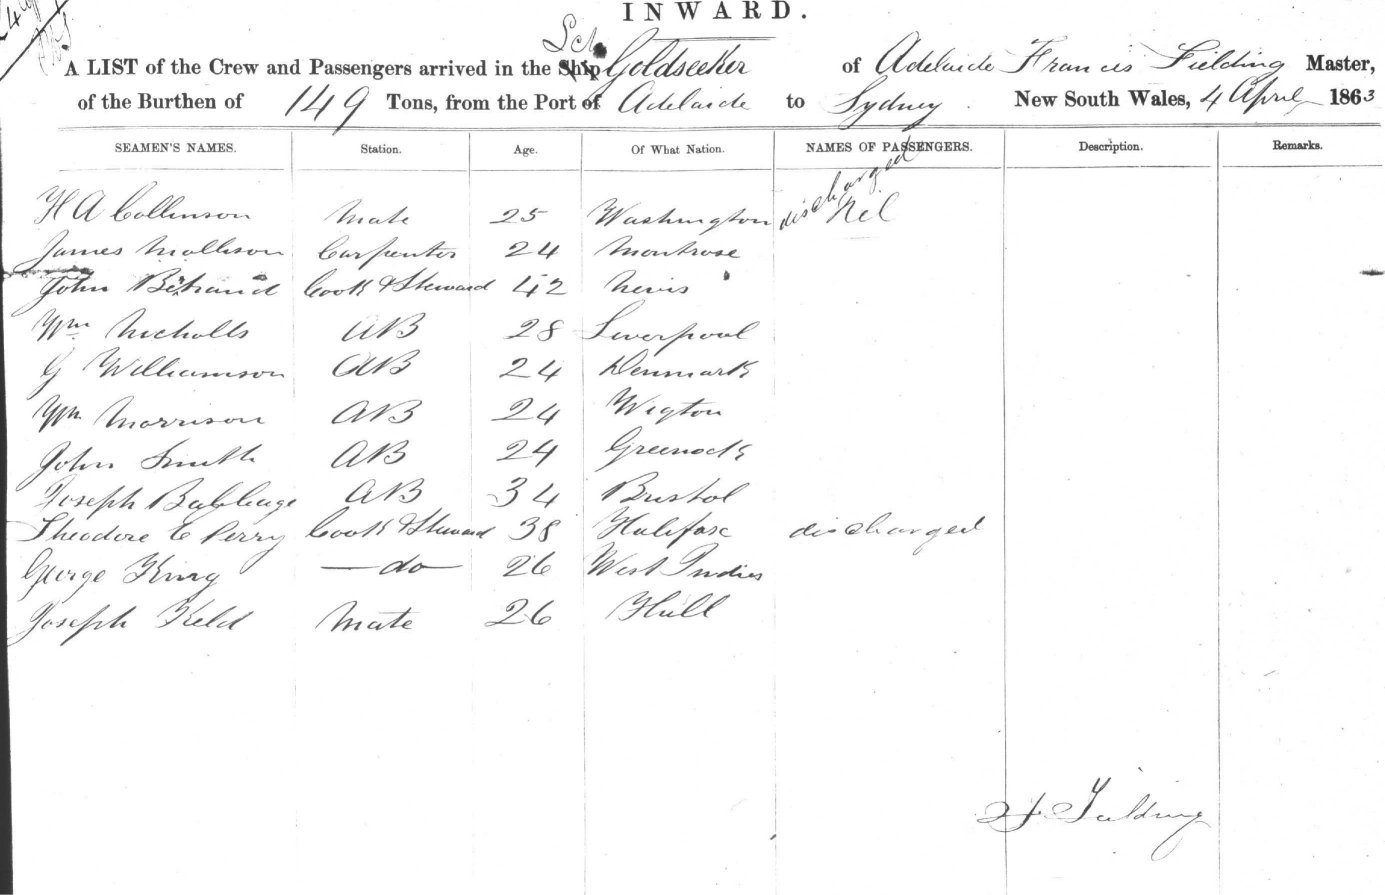 INWARD.
Sch
A LIST of the Crew and Passengers arrived in the Ship Goldseeker of Adelaide Francis Fielding Master,
of the Burthen of 149 Tons, from the Port of Adelaide to Sydney. New South Wales, 4 April 1863
SEAMEN'S NAMES. Station. Age. Of What Nation. NAMES OF PASSENGERS. Description. Remarks.
H A Collinson Mate 25 Washington discharged Nil
James Mollison Carpenter 24 Montrose
John Cook & Steward 42 Nevis
Wm Nicholls AB 28 Liverpool
G Williamson AB 24 Denmark
Wm Morrison AB 24 Wigton
John Smith AB 24 Greenock
Joseph Babbage AB 34 Bristol
Theodore E Perry Cook & Steward 38 Halifax discharged
George King do 26 West Indies
Joseph Keld Mate 26 Hull
F Fielding